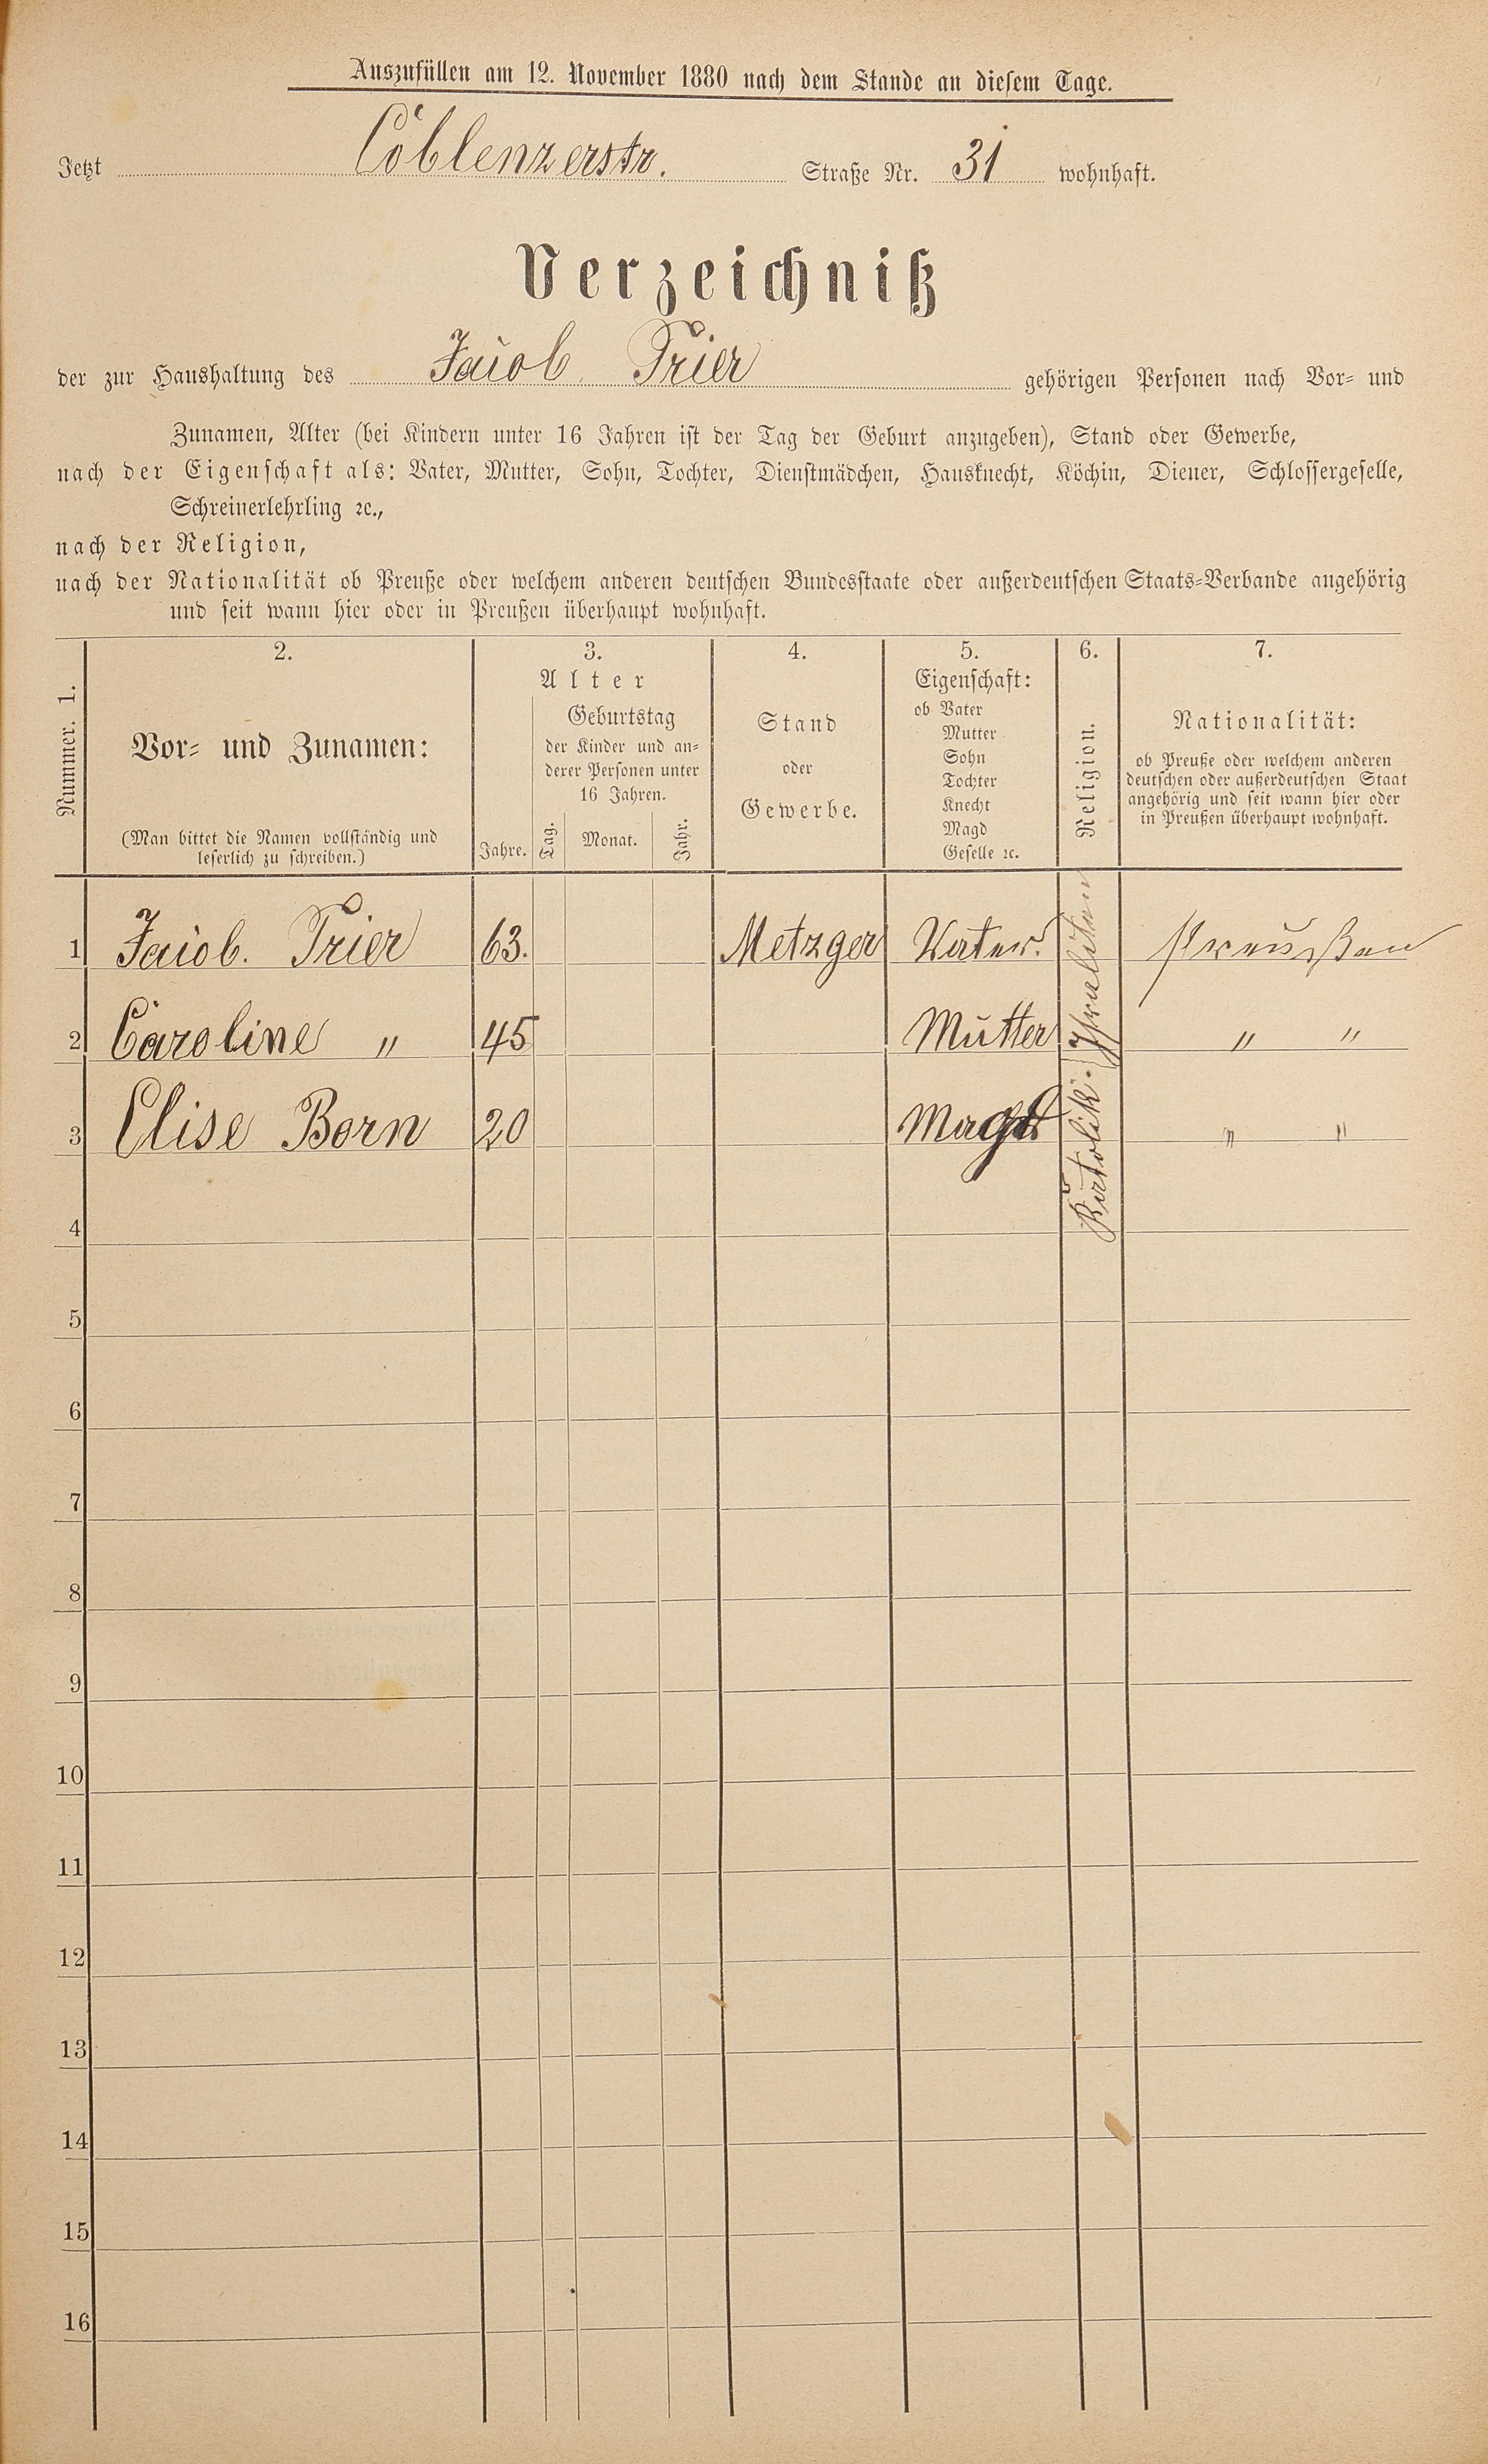 Auszufüllen am 12. November 1880 nach dem Stande an diesem Tage.
Jetzt Coblenzerstr. Straße Nr. 31 wohnhaft.
Verzeichniß
der zur Haushaltung des Jacob Trier gehörigen Personen nach Vor- und
Zunamen, Alter (bei Kindern unter 16 Jahren ist der Tag der Geburt anzugeben), Stand oder Gewerbe,
nach der Eigenschaft als: Vater, Mutter, Sohn, Tochter, Dienstmädchen, Hausknecht, Köchin, Diener, Schlossergeselle,
Schreinerlehrling ꝛc.,
nach der Religion,
nach der Nationalität ob Preuße oder welchem anderen deutschen Bundesstaate oder außerdeutschen Staats-Verbande angehörig
und seit wann hier oder in Preußen überhaupt wohnhaft.
Nummer. 1.
2.
Vor- und Zunamen:
(Man bittet die Namen vollständig und
leserlich zu schreiben.)
3.
Alter
Jahre.
Geburtstag
der Kinder und an-
derer Personen unter
16 Jahren.
Tag. Monat. Jahr.
4.
Stand
oder
Gewerbe.
5.
Eigenschaft:
ob Vater
Mutter
Sohn
Tochter
Knecht
Magd
Geselle ꝛc.
6.
Religion.
7.
Nationalität:
ob Preuße oder welchem anderen
deutschen oder außerdeutschen Staat
angehörig und seit wann hier oder
in Preußen überhaupt wohnhaft.
1 Jacob. Trier 63. Metzger Vater. Preußen
2 Caroline " 45 Mutter " "
3 Elise Born 20 Magd Katolik. " "
4
5
6
7
8
9
10
11
12
13
14
15
16